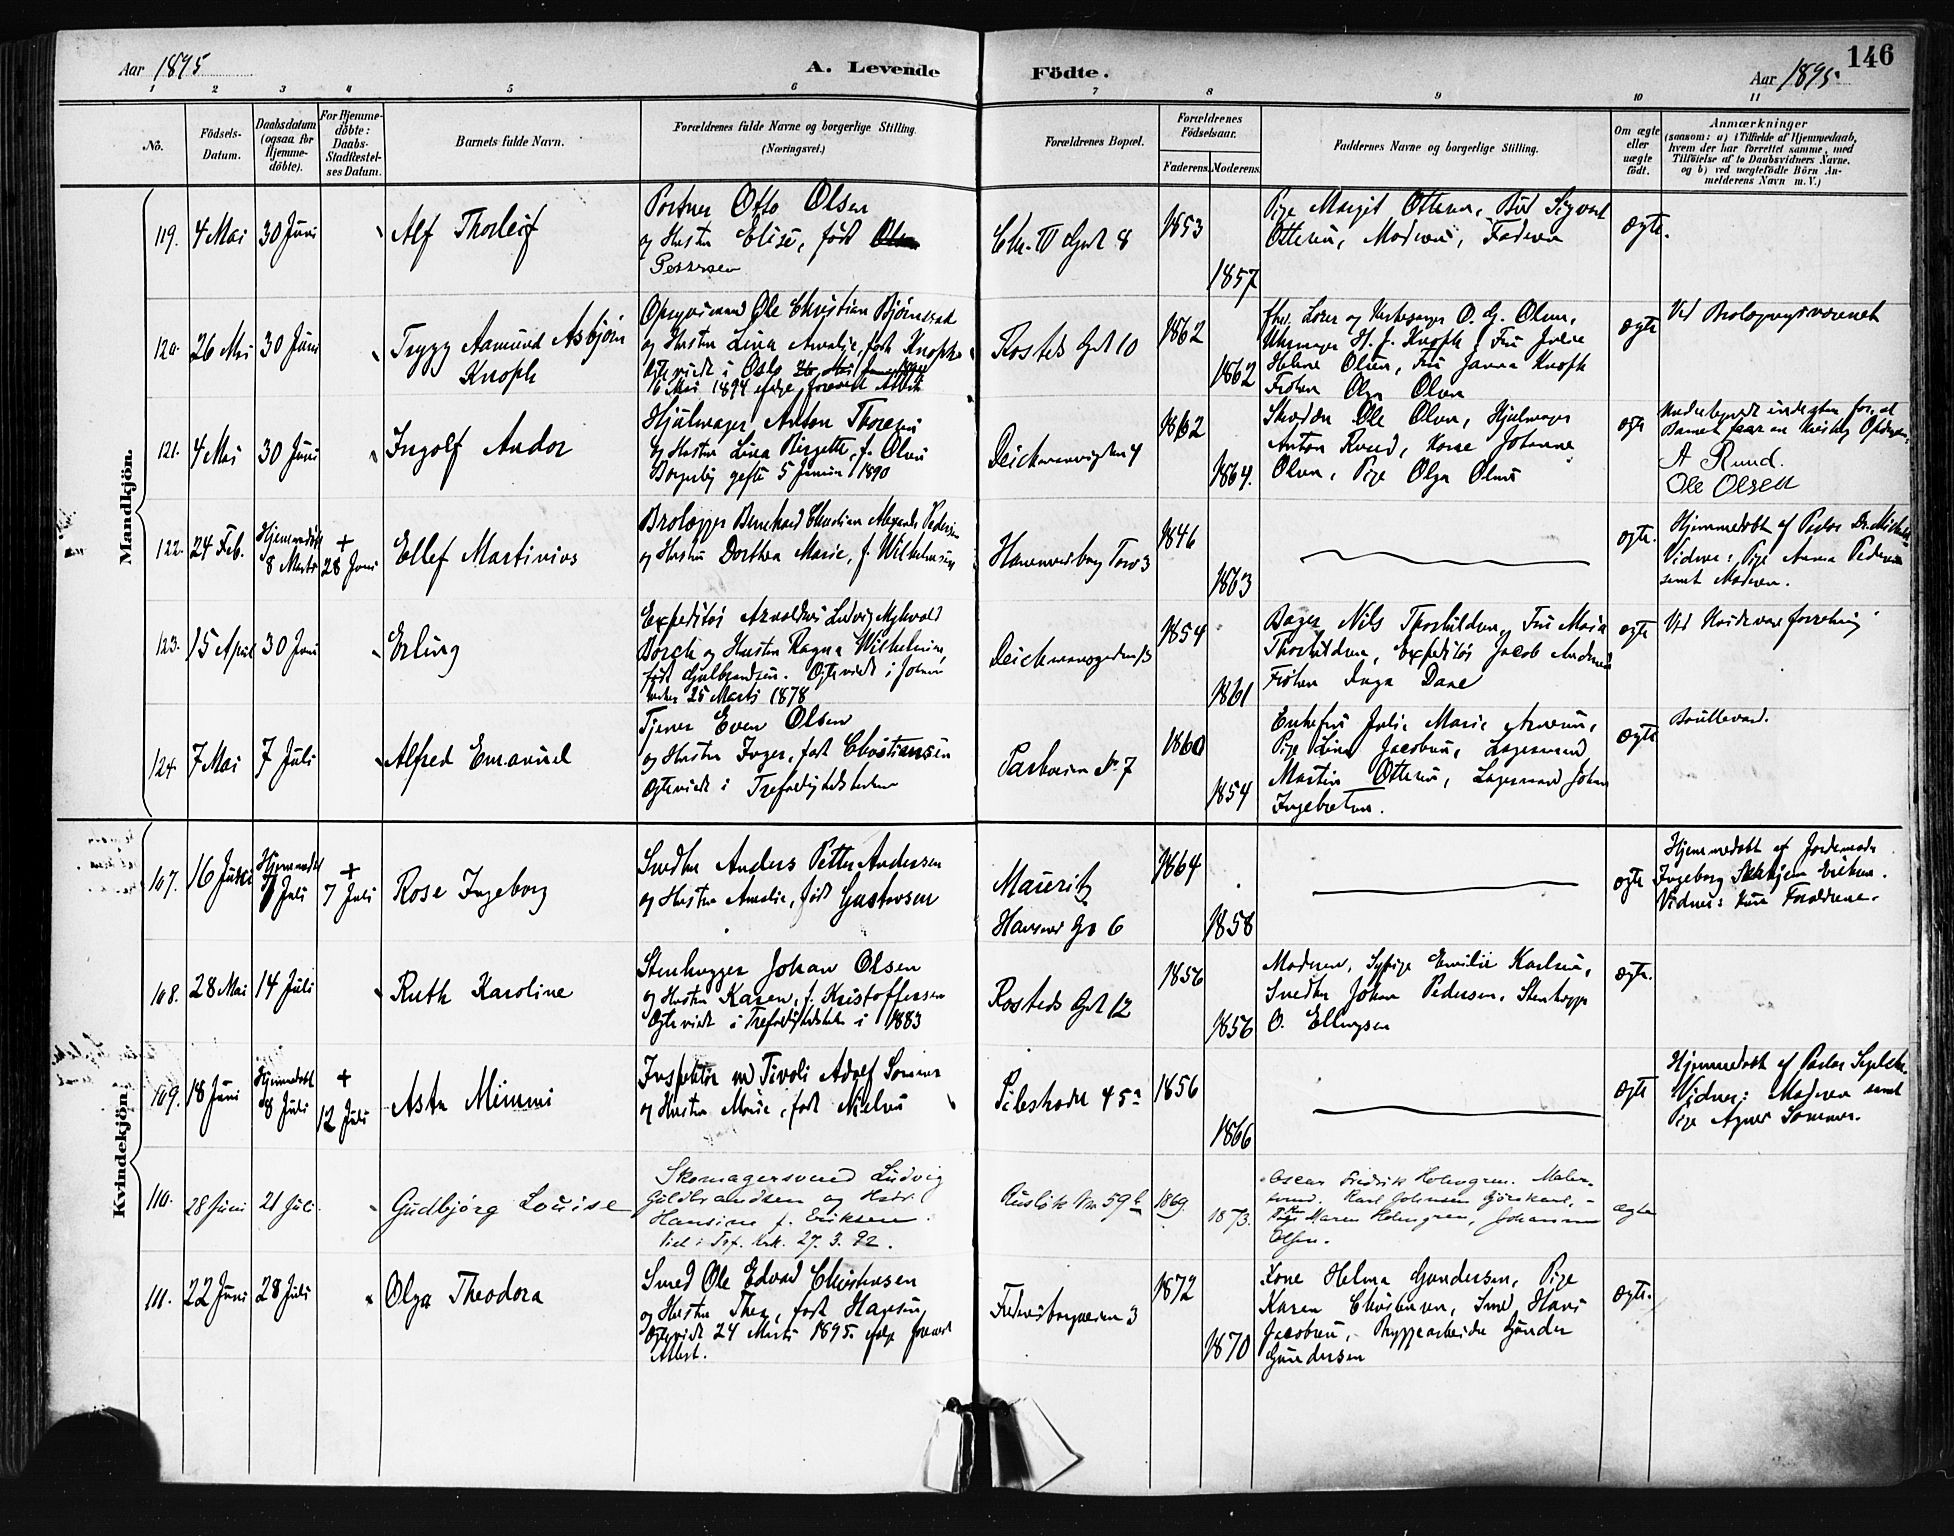 146
Aar 1895
A. Levende Födte.
Aar 1895.
1 2 3 4 5 6 7 8 9 10 11
No.
Födsels-Datum.
Daabsdatum (ogsaa for Hjemme-döbte).
For Hjemme-döbte: Daabs-Stadfæstel-ses Datum.
Barnets fulde Navn.
Forældrenes fulde Navne og borgerlige Stilling. (Næringsvei.)
Forældrenes Bopæl.
Forældrenes Födselsaar.
Faderens. Moderens.
Faddernes Navne og borgerlige Stilling.
Om ægte eller uægte födt.
Anmærkninger
(saasom: a) i Tilfælde af Hjemmedaab,
hvem der har forrettet samme, med
Tilföielse af to Daabsvidners Navne,
og b) ved uægtefödte Börn An-
melderens Navn m. V.)
Mandkjön.
119. 4 Mai 30 Juni Alf Thorleif
Portner Otto Olsen
og Hustru Elise, født Olsen
Pettersen
Chr. IV Gad 8
1853
1857
Pige Margit Ottesen, Bud Sigvart
Ottesen, Moderen, Faderen
ægte.
120. 26 Mai 30 Juni Trygg Aamund Asbjørn
Knoph
Opsynsmand Ole Christian Bjørnstad
og Hustru Lina Amalie, født Knoph
Ægteviede i Oslo
6 Mai 1894 ifølge forevist Attest
Rosteds Gad 10
1862
1862
Helene Olsen, Fru Janna Knoph
Frøken Olga Olsen
ægte
121. 4 Mai 30 Juni Ingolf Andor
Hjulmager Anton Thoresen
og Hustru Lina Birgette, f. Olsen
gifte 5 Januar 1890
1862
1864.
Ole Olsen, Hjulmager
Anton Ruud, Kone Johanne
Olsen, Pige Olga Olsen
ægte
A Ruud.
Ole Olsen
122. 24 Feb. Hjemmedøbt 8 Marts + 28 Juni Ellef Martinius
Brolægger Bernhard Christian Alexander Pedersen
og Hustru Dorthea Marie, f. Wilhelmsen
Hammersborg Torv 3
1846
1863
ægte.
Hjemmedøbt af Pastor Dr. Michel
Vidner: Pige Anna Pedersen
samt Moderen.
123. 15 April 30 Juni Erling
Expeditør Arnoldus Ludvig Mykvold
Borch og Hustru Ragna Wilhelmine,
født Gulbrandsen. Ægteviede i Johannes
kirken 25 Marts 1878
Deichmansgaden 13
1854
1861
Bager Nils Thorkildsen, Fru Maria
Thorkildsen, Expeditør Jacob Andersen
Frøken Inga Dane
ægte
124. 7 Mai 7 Juli Alfred Emanuel
Tjener Even Olsen
og Hustru Inger, født Christiansen
Ægteviede i Trefoldighedskirken
Parkveien No 7
1860
1854
Enkefru Julie Marie Arnesen,
Pige Lina Jacobsen, Lagermand
Martin Ottesen, Lagermand Johan
Ingebretsen.
ægte
Boullevard.
Kvindekjön.
107. 16 Juni Hjemmedøbt 7 Juli + 7 Juli Rose Ingeborg
Snedker Anders Petter Andersen
og Hustru Amalie, født Gustavsen
Mauritz
Hansens Gd 6
1864
1858
ægte
Hjemmedøbt af Jordemoder
Ingeborg
Vidner: kun Forældrene.
108. 28 Mai 14 Juli Ruth Karoline
Stenhugger Johan Olsen
og Hustru Karen, f. Kristoffersen
Ægteviede i Trefoldighedskirken i 1883
Rosteds Gad 12
1856
1856
Moderen, Sypige Emilie Karlsen,
Snedker Johan Pedersen, Stenhugger
O. Ellingsen
ægte.
109. 18 Juni Hjemmedøbt 8 Juli + 12 Juli Asta Mimmi
Inspektør ved Tivoli Adolf Sommer
og Hustru Marie, født Nielsen
Pilestræde 45a
1856
1866
ægte
Vidner: Moderen samt
Pige Agnes Sommer.
110. 28 Juni 21 Juli Gudbjørg Louise
Skomagersvend Ludvig
Guldbrandsen og Hstr.
Hansine f. Eriksen.
Viet i Tref. Krk. 27. 3. 92.
Ruseløk No 59b
1869
1873.
Oscar Fredrik Holmgren. Maler-
svend. Karl Johnsen
Maren Holmgren, Johanne
Olsen.
ægte
111. 22 Juni 28 Juli Olga Theodora
Smed Ole Edvard Christensen
og Hustru Thea, født Hansen
Ægteviede 24 Marts 1895 ifølge forevist
Attest.
1872
1870
Kone Helma Gundersen, Pige
Karen Christensen, Smed Hans
Jacobsen, Bryggearbeider Gunder
Gundersen
ægte.